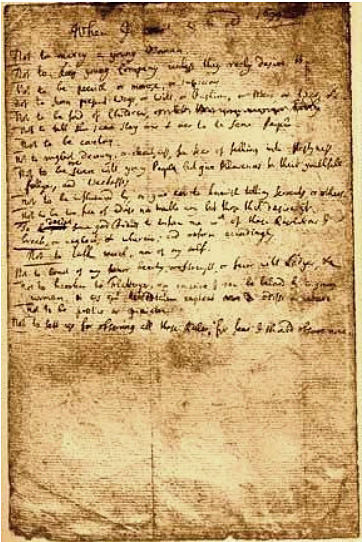 When I 1699
Not to marry a young Woman.
Not to keep young Company unless they reely desire it.
Not to be peevish or morose, or suspicious
Not to scorn present Ways, or Wits, or Fashions, or Men, or War, &c.
Not to be fond of Children,
Not to tell the same Story over & over to the same People
Not to be covetous.
Not to neglect decency, or cleenlyness, for fear of falling into Nastyness
Not to be over severe with young People, but give Allowances for their youthfull
follyes, and Weeknesses
Not to be influenced by, or give ear to knavish tatling Servants, or others.
Not to be too free of advise nor trouble any but those that desire it.
To desire some good Friends to inform me wch of these Resolutions I
break, or neglect, & wherein; and reform accordingly.
Not to talk much, nor of my self.
Not to boast of my former beauty, or strength, or favor with Ladyes, &c
Not to hearken to Flatteryes, nor conceive I can be beloved by a young
woman. et eos qui hereditatem captant odisse ac vitare
Not to be positive or opiniative.
Not to sett up for observing all these Rules, for fear I should observe none.